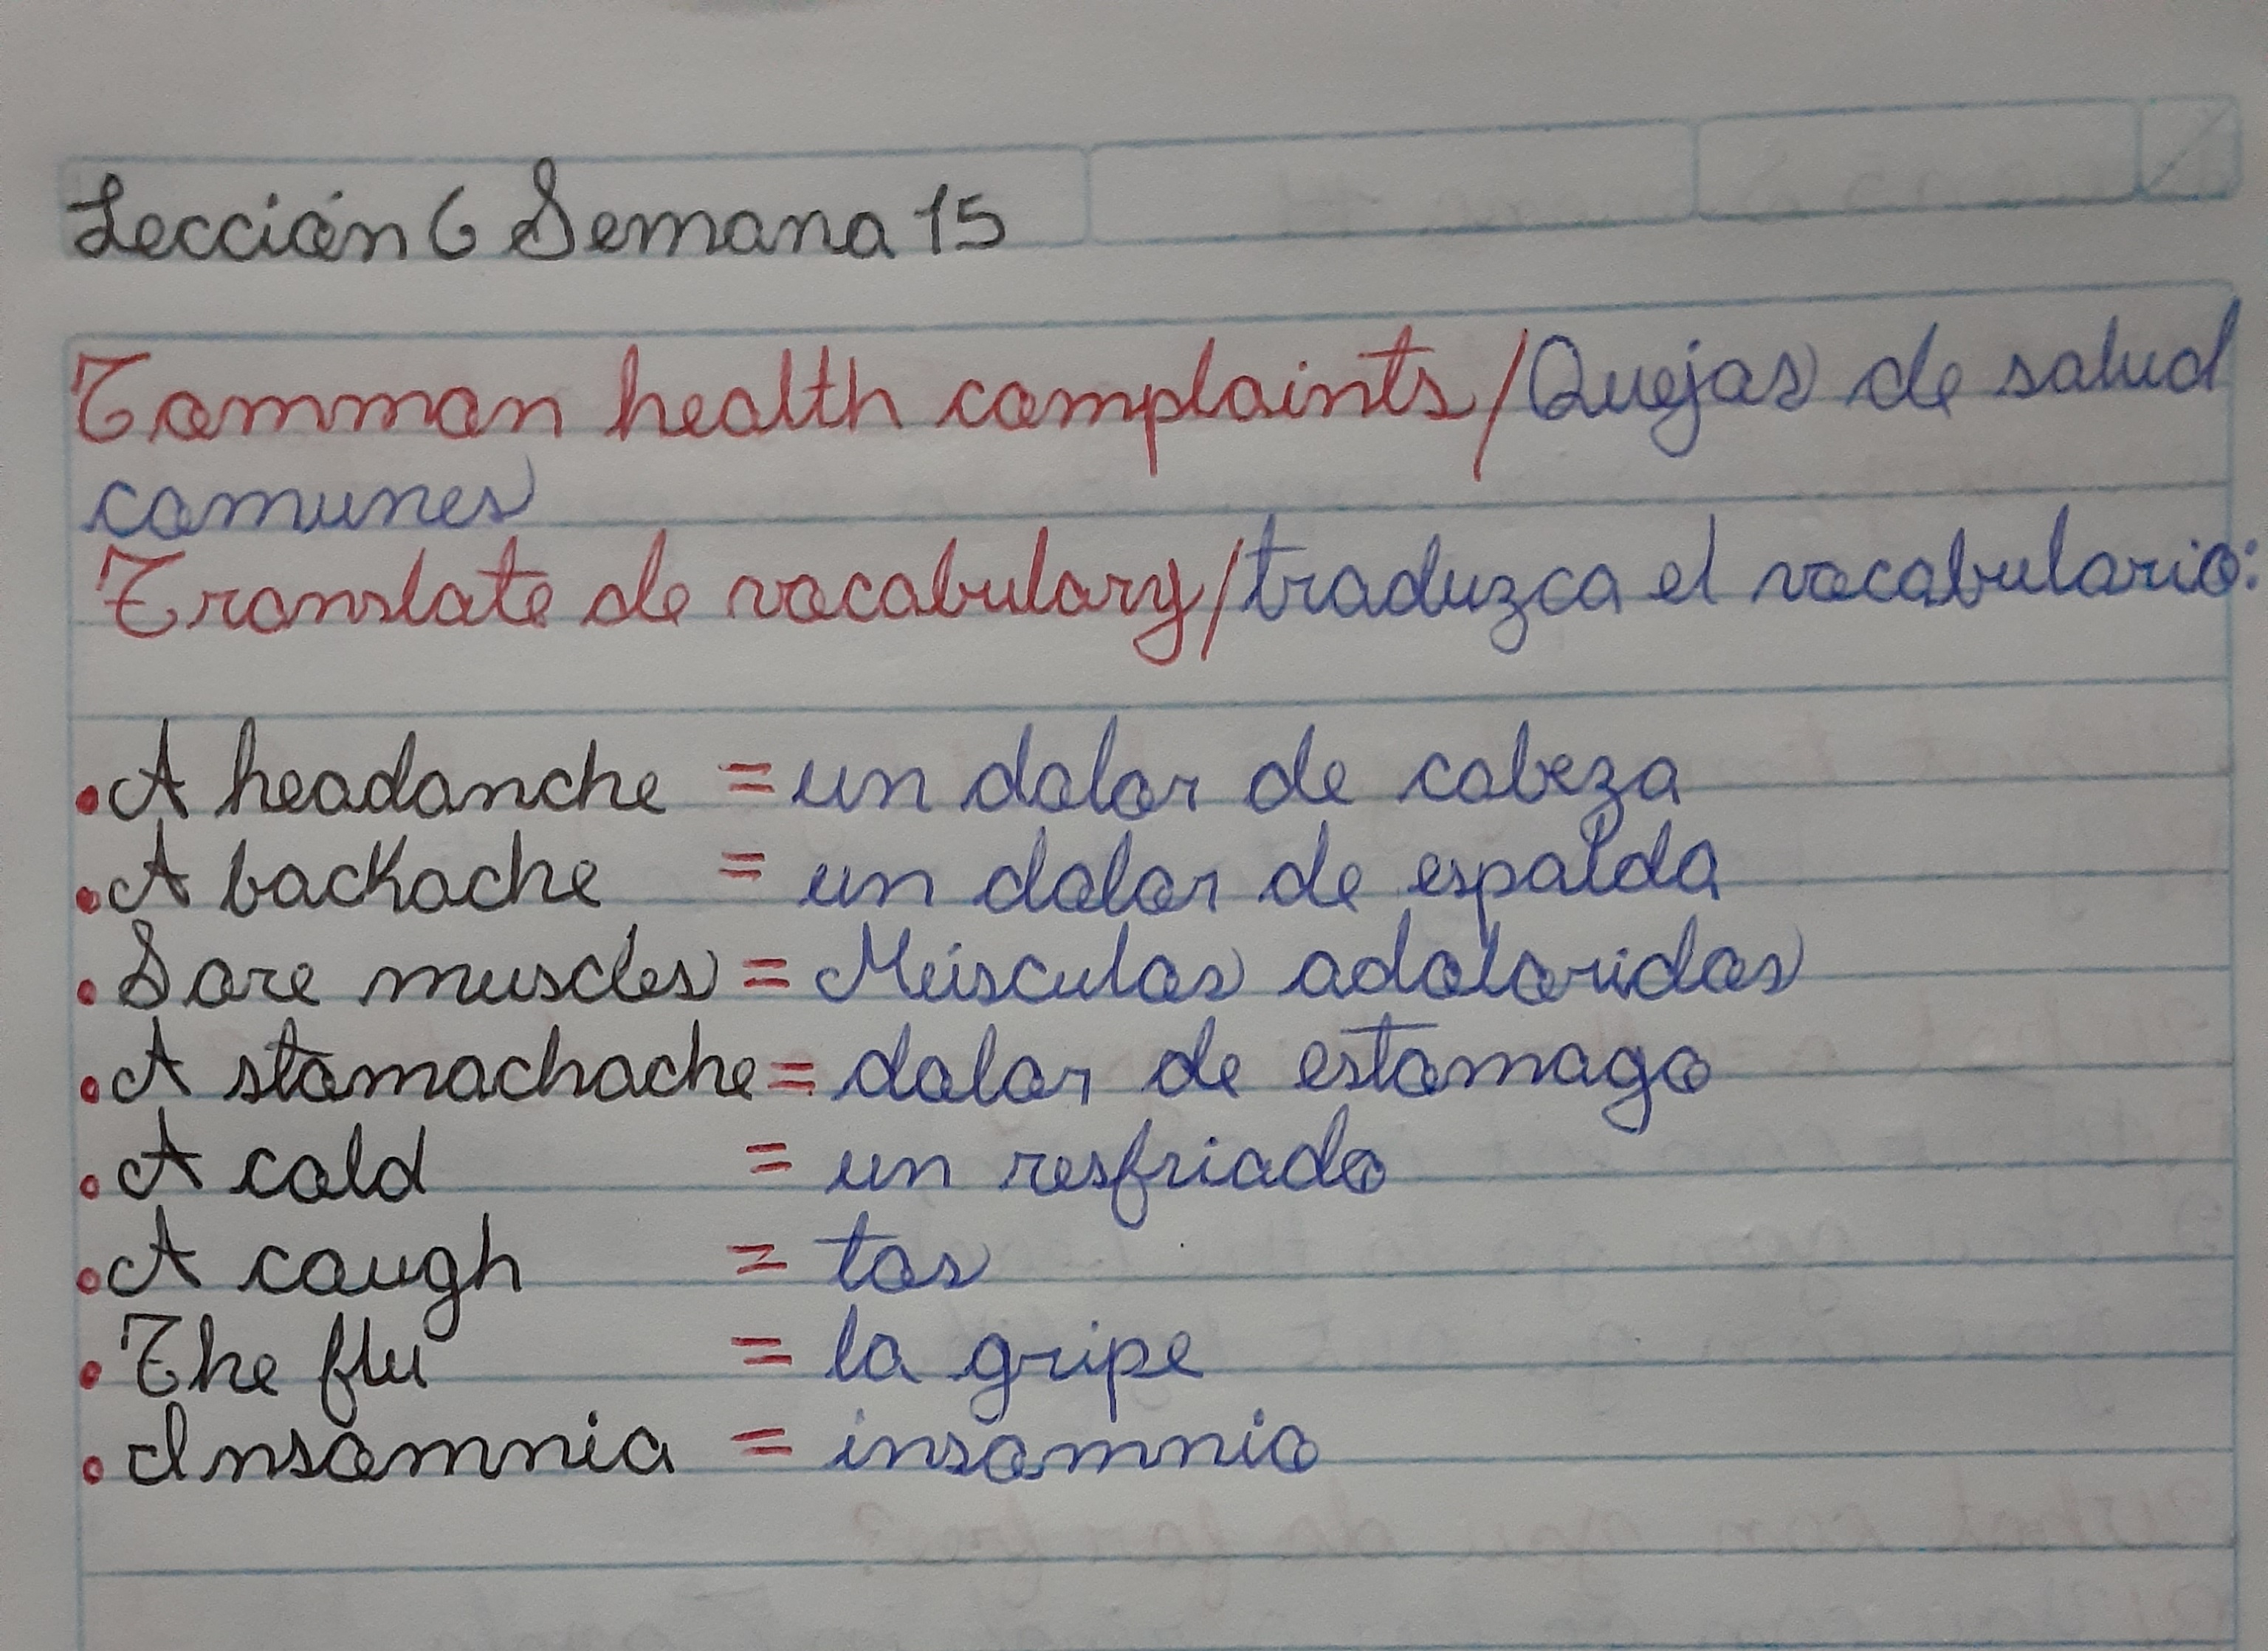 Lección 6 Semana 15
Common health complaints/Quejas de salud
comunes
Translate de vocabulary/traduzca el vocabulario:
• A headanche = un dolor de cabeza
• A backache = un dolor de espalda
• Sore muscles = Músculos adoloridos
• A stomachache = dolor de estomago
• A cold = un resfriado
• A cough = tos
• The flu = la gripe
• Insomnia = insomnio